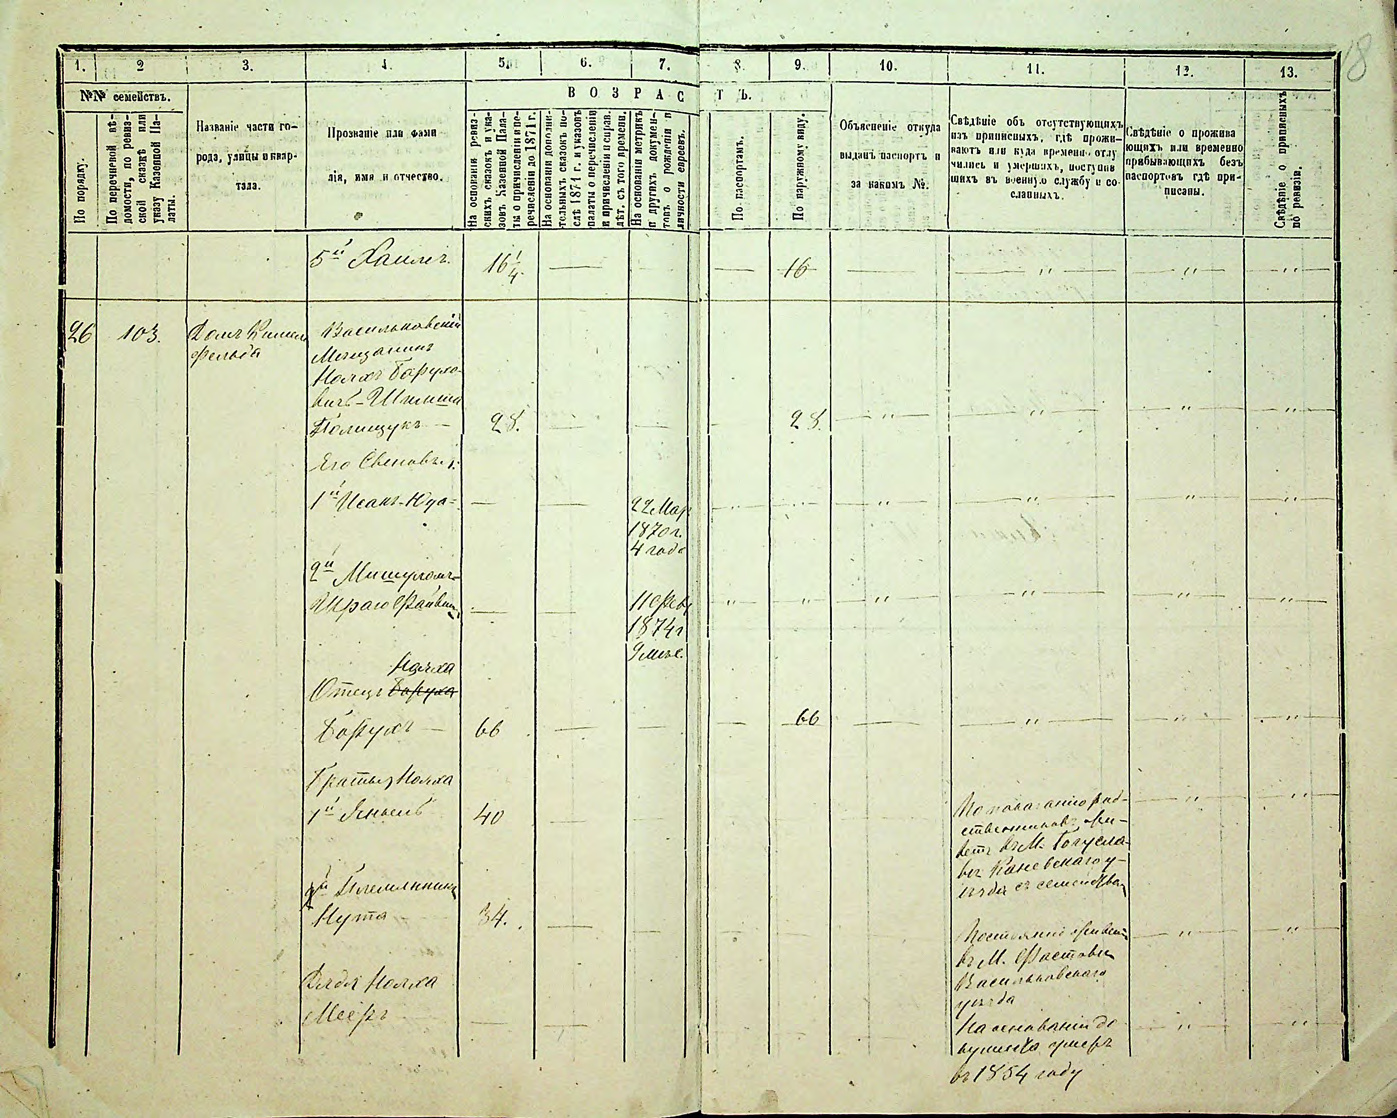 18
1. 2 3. 4. 5. 6. 7. 8. 9. 10. 11. 12. 13.
№№ семействъ.
По порядку.
По перечневой вѣ-
домости, по ревиз-
ской сказкѣ или
указу Казенной Па-
латы.
Названіе части го-
рода, улицы и квар-
тала.
Прозваніе или фами
лія, имя и отчество.
ВОЗРАСТЪ.
На основаніи ревиз-
скихъ сказокъ и ука-
зовъ Казенной Пала-
ты о причисленіи и пе-
речисленіи до 1874 г.
На основаніи дополни-
тельныхъ сказокъ по-
слѣ 1874 г. и указовъ
палаты о перечисленіи
и причисленіи и справ.
лѣт. съ того времени.
На основаніи метрикъ
и других докумен-
товъ о рожденіи и
личности евреевъ.
По паспортамъ.
По наружному виду.
Объясненіе откуда
выданъ паспортъ и
за какомъ №.
Свѣдѣніе объ отсутствующихъ
изъ приписныхъ, гдѣ прожи-
ваютъ или куда временно отлу
чились и умершихъ, поступив
шихъ въ военную службу и со-
сланныхъ.
Свѣдѣніе о прожива
ющихъ или временно
прибывающихъ безъ
паспортовъ гдѣ при-
писаны.
Свѣдѣніе о приписныхъ
по ревизіи.
5й Хаимъ 16 1/4 — — 16 — " " "
26 103. Домъ
фельда
Васильковскій
Мещанинъ
Нолхъ Борухо-
вичъ-
Полищукъ — 28. — — — 28. " " " "
Его Сыновья:
1й Исакъ-Юда — — 22 Мар
1870 г.
4 года
" " "
2й Мишуломъ
— — 11 Фев
1874 г
9 мѣс.
" " " " "
Нолха
Отецъ Боруха
Борухъ — 66 — — — 66 — " " "
Братья Нолха
1й Янкель 40 — — — —
По показанію род-
ственниковъ жи-
ветъ въ М. Богусла-
въ Каневскаго у-
ѣзда съ семействомъ
" "
2й Племянникъ
Нута — 34. — — — —
Постоянно живетъ
въ М. Фастовѣ
Васильковскаго
уѣзда
" "
Дядя Нолха
Мееръ — — —
На основаніи до
кумента умеръ
въ 1854 году
" "